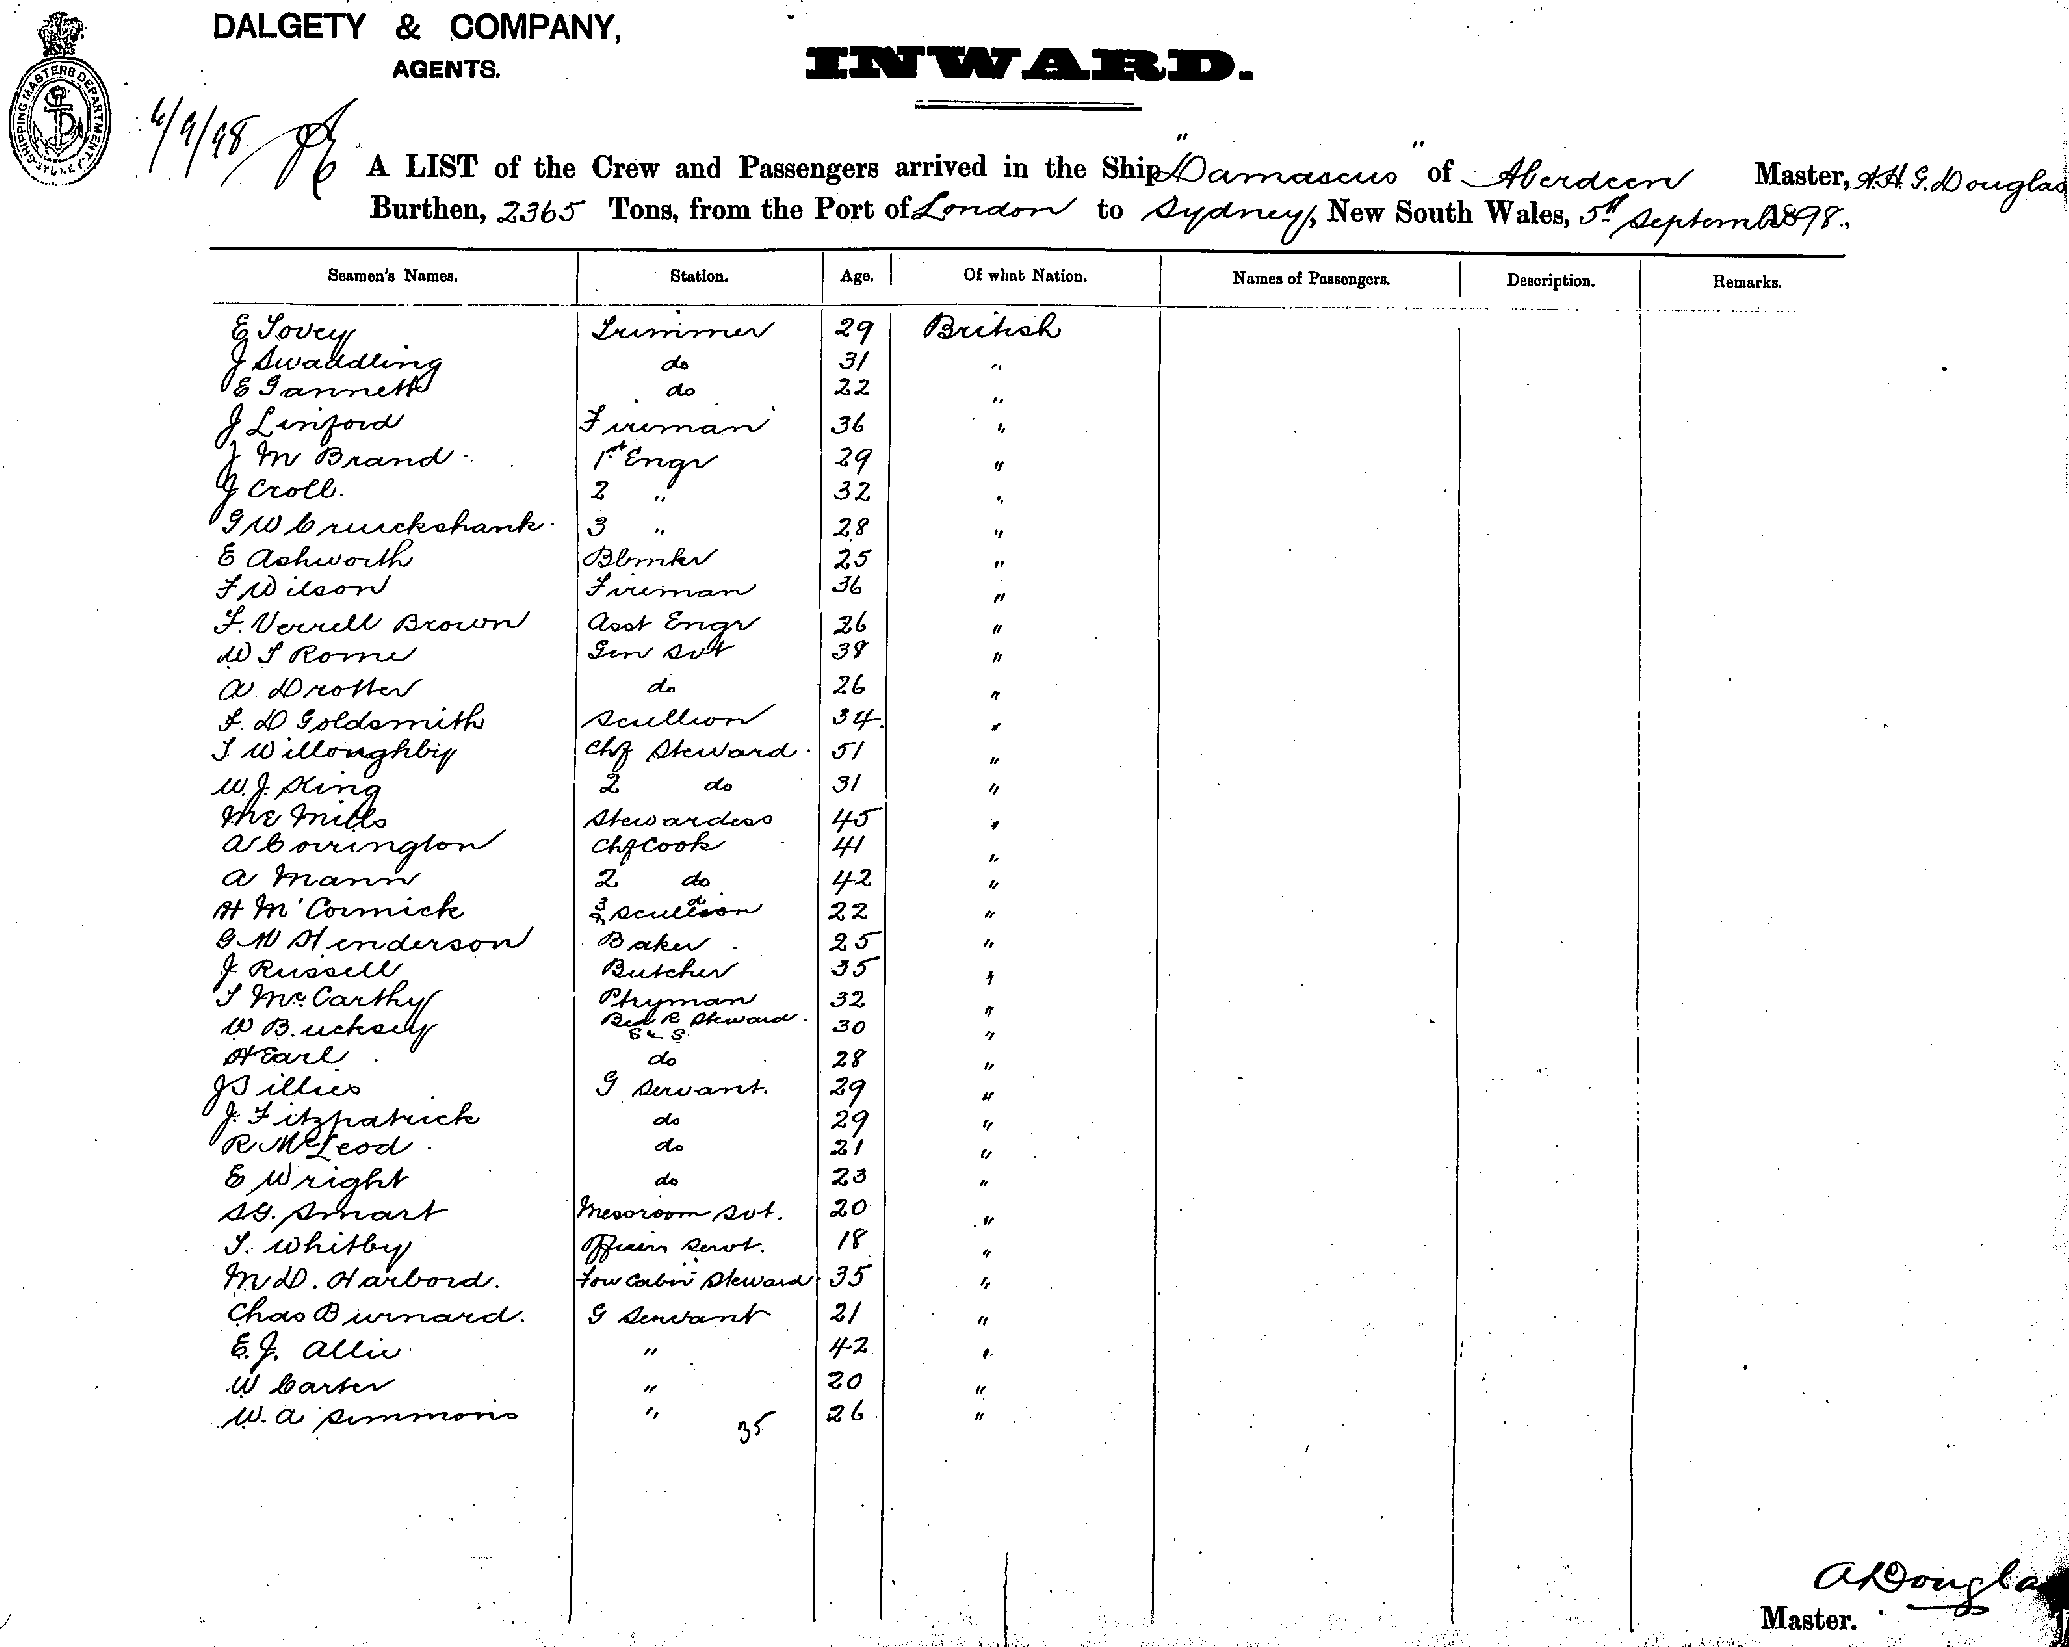 DALGETY & COMPANY,
AGENTS.
INWARD.
SHIPPING MASTERS DEPARTMENT
6/9/98
A LIST of the Crew and Passengers arrived in the Ship "Damascus" of Aberdeen Master, A.H.G. Douglas
Burthen, 2365 Tons, from the Port of London to Sydney, New South Wales, 5th Septemb 1898.
Seamen's Names. Station. Age. Of what Nation. Names of Passengers. Description. Remarks.
E Tovey Trimmer 29 British
J Swaddling do 31 "
E Gannett do 22 "
J Linford Fireman 36 "
J M Brand 1st Engr 29 "
J Croll. 2 " 32 "
G W Cruickshank 3 " 28 "
E Ashworth Blmkr 25 "
F Wilson Fireman 36 "
F. Verrell Brown Asst Engr 26 "
W S Rome Gen Svt 38 "
A Drotter do 26 "
F. D Goldsmith Scullion 34 "
T Willoughby Chf Steward 51 "
W. J. King 2 do 31 "
M E Mills Stewardess 45 "
A Corrington Chf Cook 41 "
A Mann 2 do 42 "
H McCormick Scullion 22 "
G W Henderson Baker 25 "
J Russell Butcher 35 "
T McCarthy Ptryman 32 "
W Bucksey Bed R Steward 30 "
H Earl do 28 "
J Billies G Servant. 29 "
J. Fitzpatrick do 29 "
R McLeod do 21 "
E Wright do 23 "
S G. Smart Messroom Svt. 20 "
T. Whitby Officers Servt. 18 "
M D. Harbord. Fow Cabin Steward 35 "
Chas Burnard. G Servant 21 "
E. J. Allie " 42 "
W Carter " 20 "
W. A Simmons " 26 "
35
A Douglas
Master.